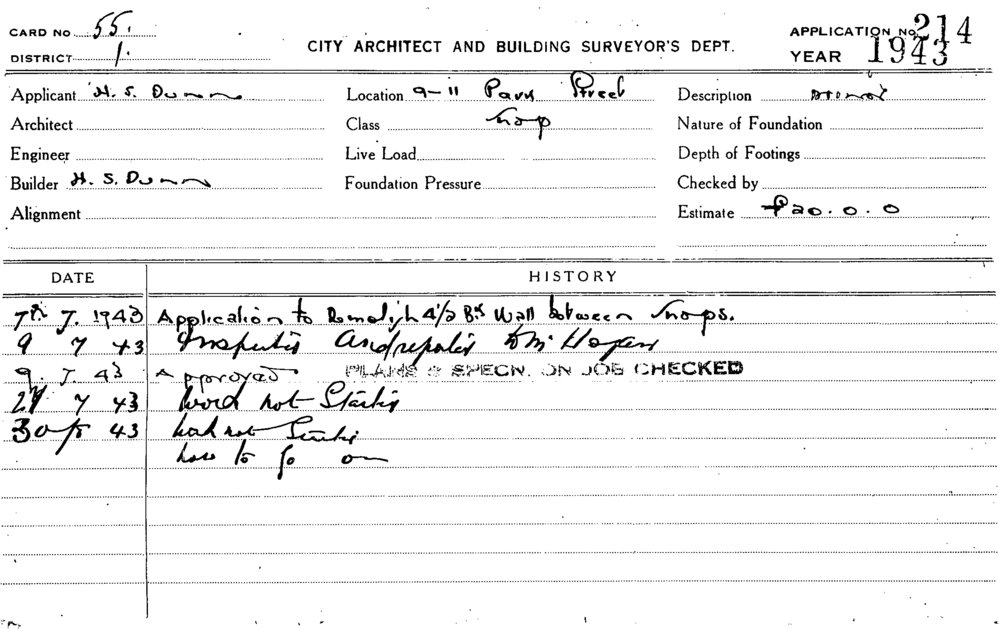 CARD NO 55.
DISTRICT 1.
CITY ARCHITECT AND BUILDING SURVEYOR'S DEPT.
APPLICATION No. 214
YEAR 1943
Applicant H. S. Dunn
Location 9-11 Park Street
Description
Architect
Class Shop
Nature of Foundation
Engineer
Live Load
Depth of Footings
Builder H. S. Dunn
Foundation Pressure
Checked by
Alignment
Estimate £20.0.0
DATE HISTORY
7th 7. 1943 Application to Demolish 4½ Bk Wall between Shops.
9 7 43 Inspected and reported to Mr Hogan
9. 7. 43 Approved PLANS & SPECN. ON JOB CHECKED
27 7 43 Work not Started
30/8 43 Work not Started
to go on